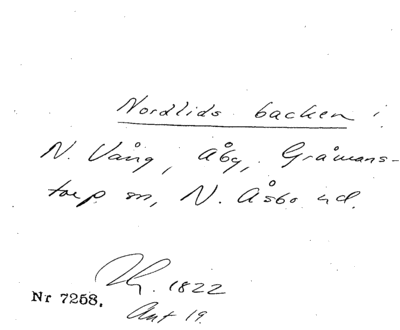 Nordlids backen i
N. Vång, Åby, Gråmans-
torp sn, N. Åsbo hd.
1822
Nr 7258.
Ant 19.